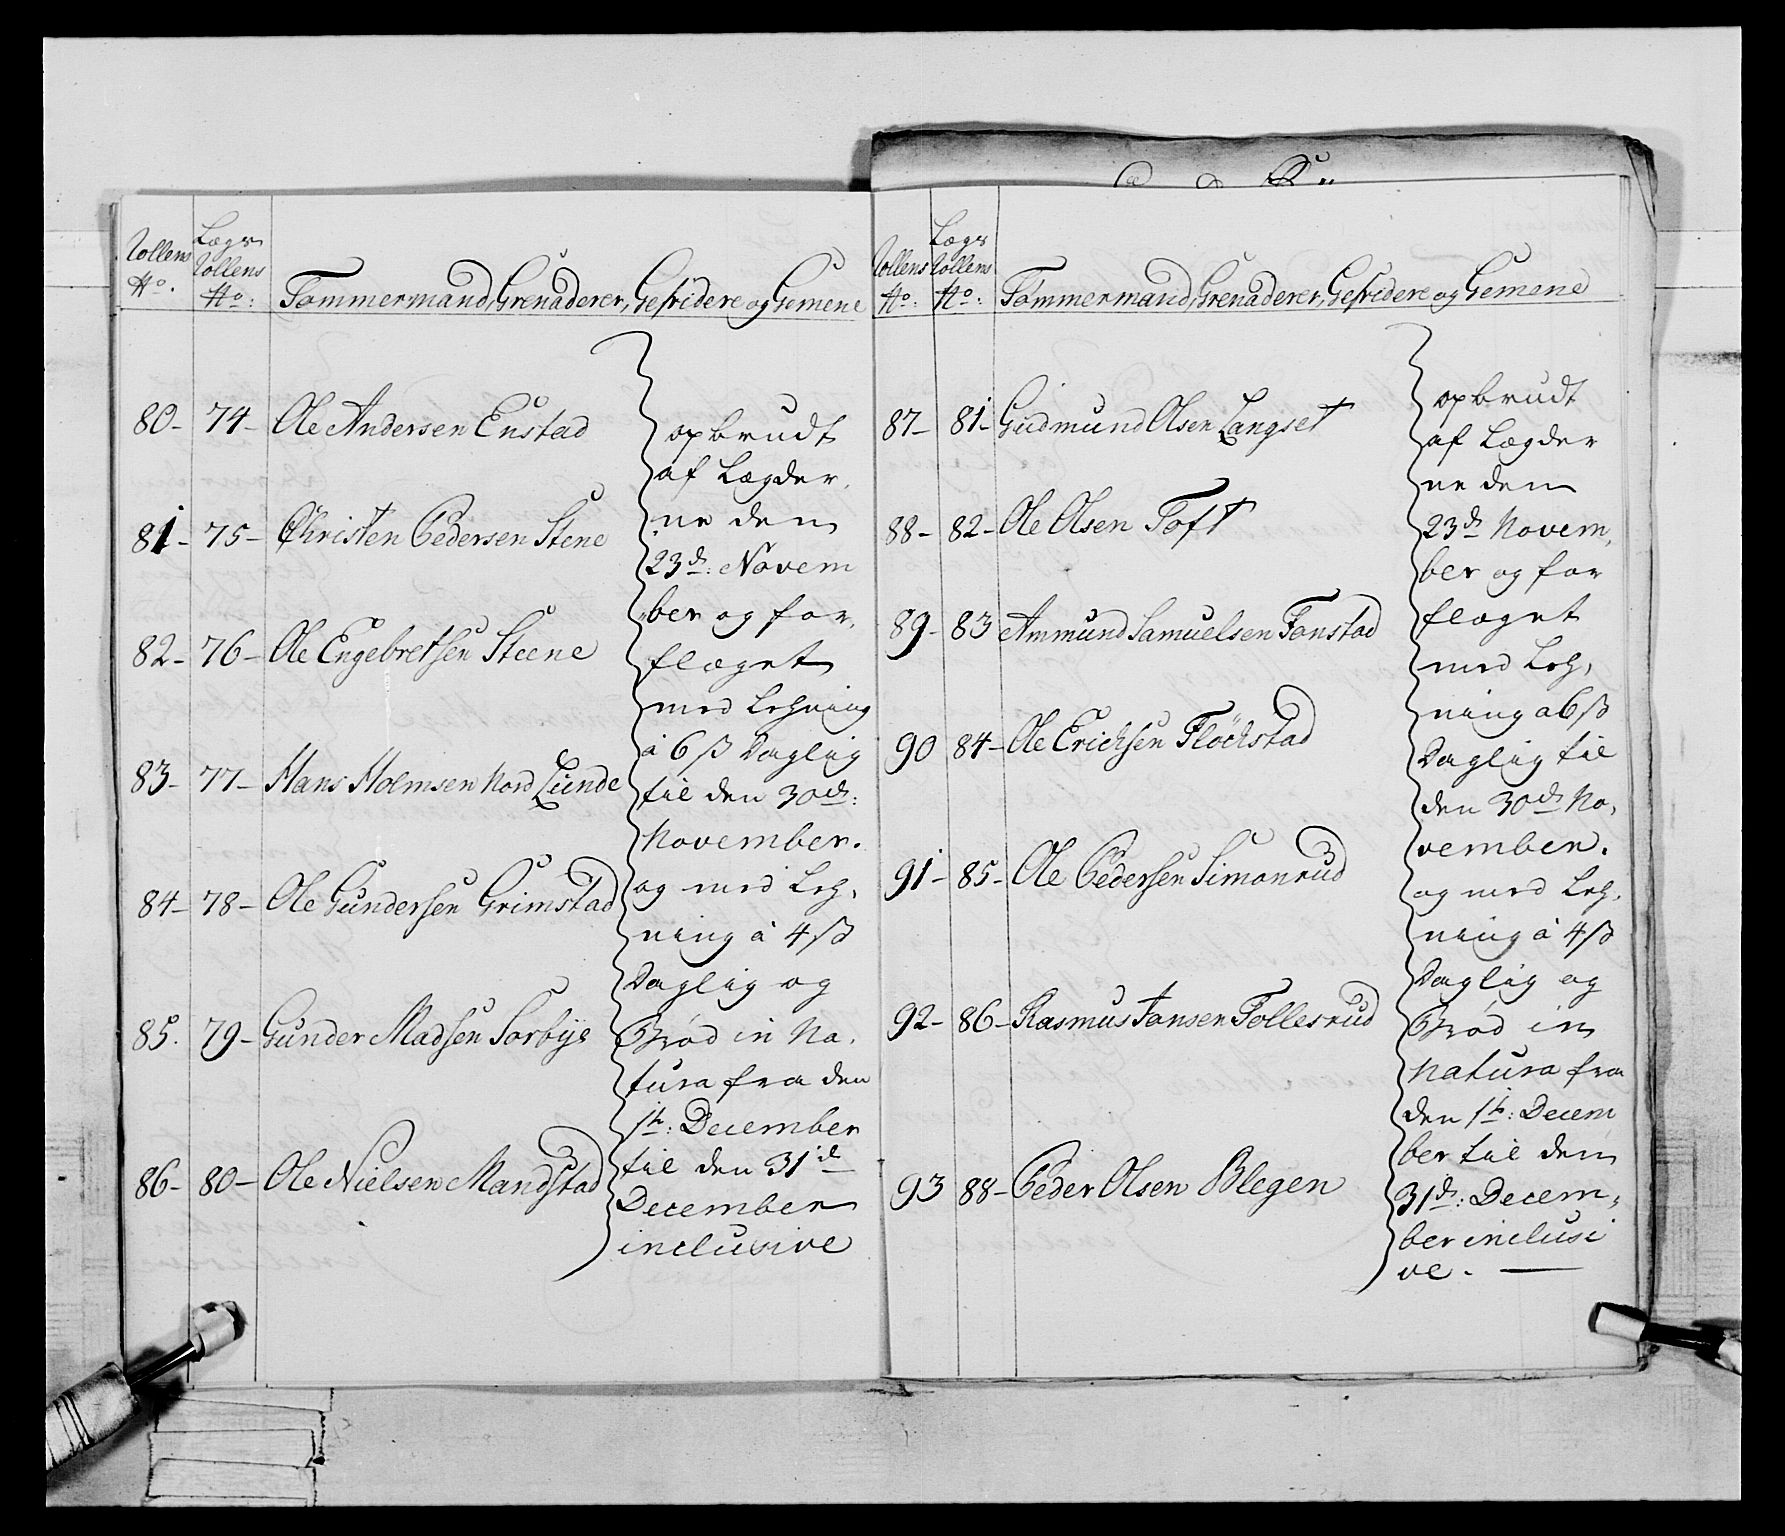 Rollens No.
Lægs Rollens No:
Tømmermænd, Grenaderer, Gefridere og Gemene
80- 74- Ole Andersen Enstad
81- 75- Christen Pedersen Stene
82- 76- Ole Engebretsen Steene
83- 77- Hans Holmsen Nord Lunde
84- 78- Ole Gundersen Grimstad
85. 79- Gunder Madsen Sorbye
86- 80- Ole Nielsen Mandstad
opbrudt
af Lægder,
ne den
23de: Novem
ber og for,
flæget
med Lehning
à 6 ß Daglig
til den 30de:
November.
og med Leh,
ning à 4 ß
Daglig og
Brød in Na,
tura fra den
1te: December
til den 31de
December
inclusive
Rollens No:
Lægs Rollens No:
Tømmermænd, Grenaderer, Gefridere og Gemene
87- 81- Gudmund Olsen Langset
88- 82- Ole Olsen Toft
89- 83 Ammund Samuelsen Fonstad
90 84- Ole Erichsen Flöchstad
91- 85- Ole Pedersen Simonrud
92- 86- Rasmus Jansen Tollesrud
93 88- Peder Olsen Blegen
opbrudt
af Lægder
ne den
23de Novem,
ber og for
flæget
med Leh,
ning a 6 ß
Daglig til
den 30de No,
vember.
og med Leh,
ning à 4 ß
Daglig og
Brød in
Natura fra
den 1te: Decem
ber til den
31de: Decem,
ber inclusi
ve. —